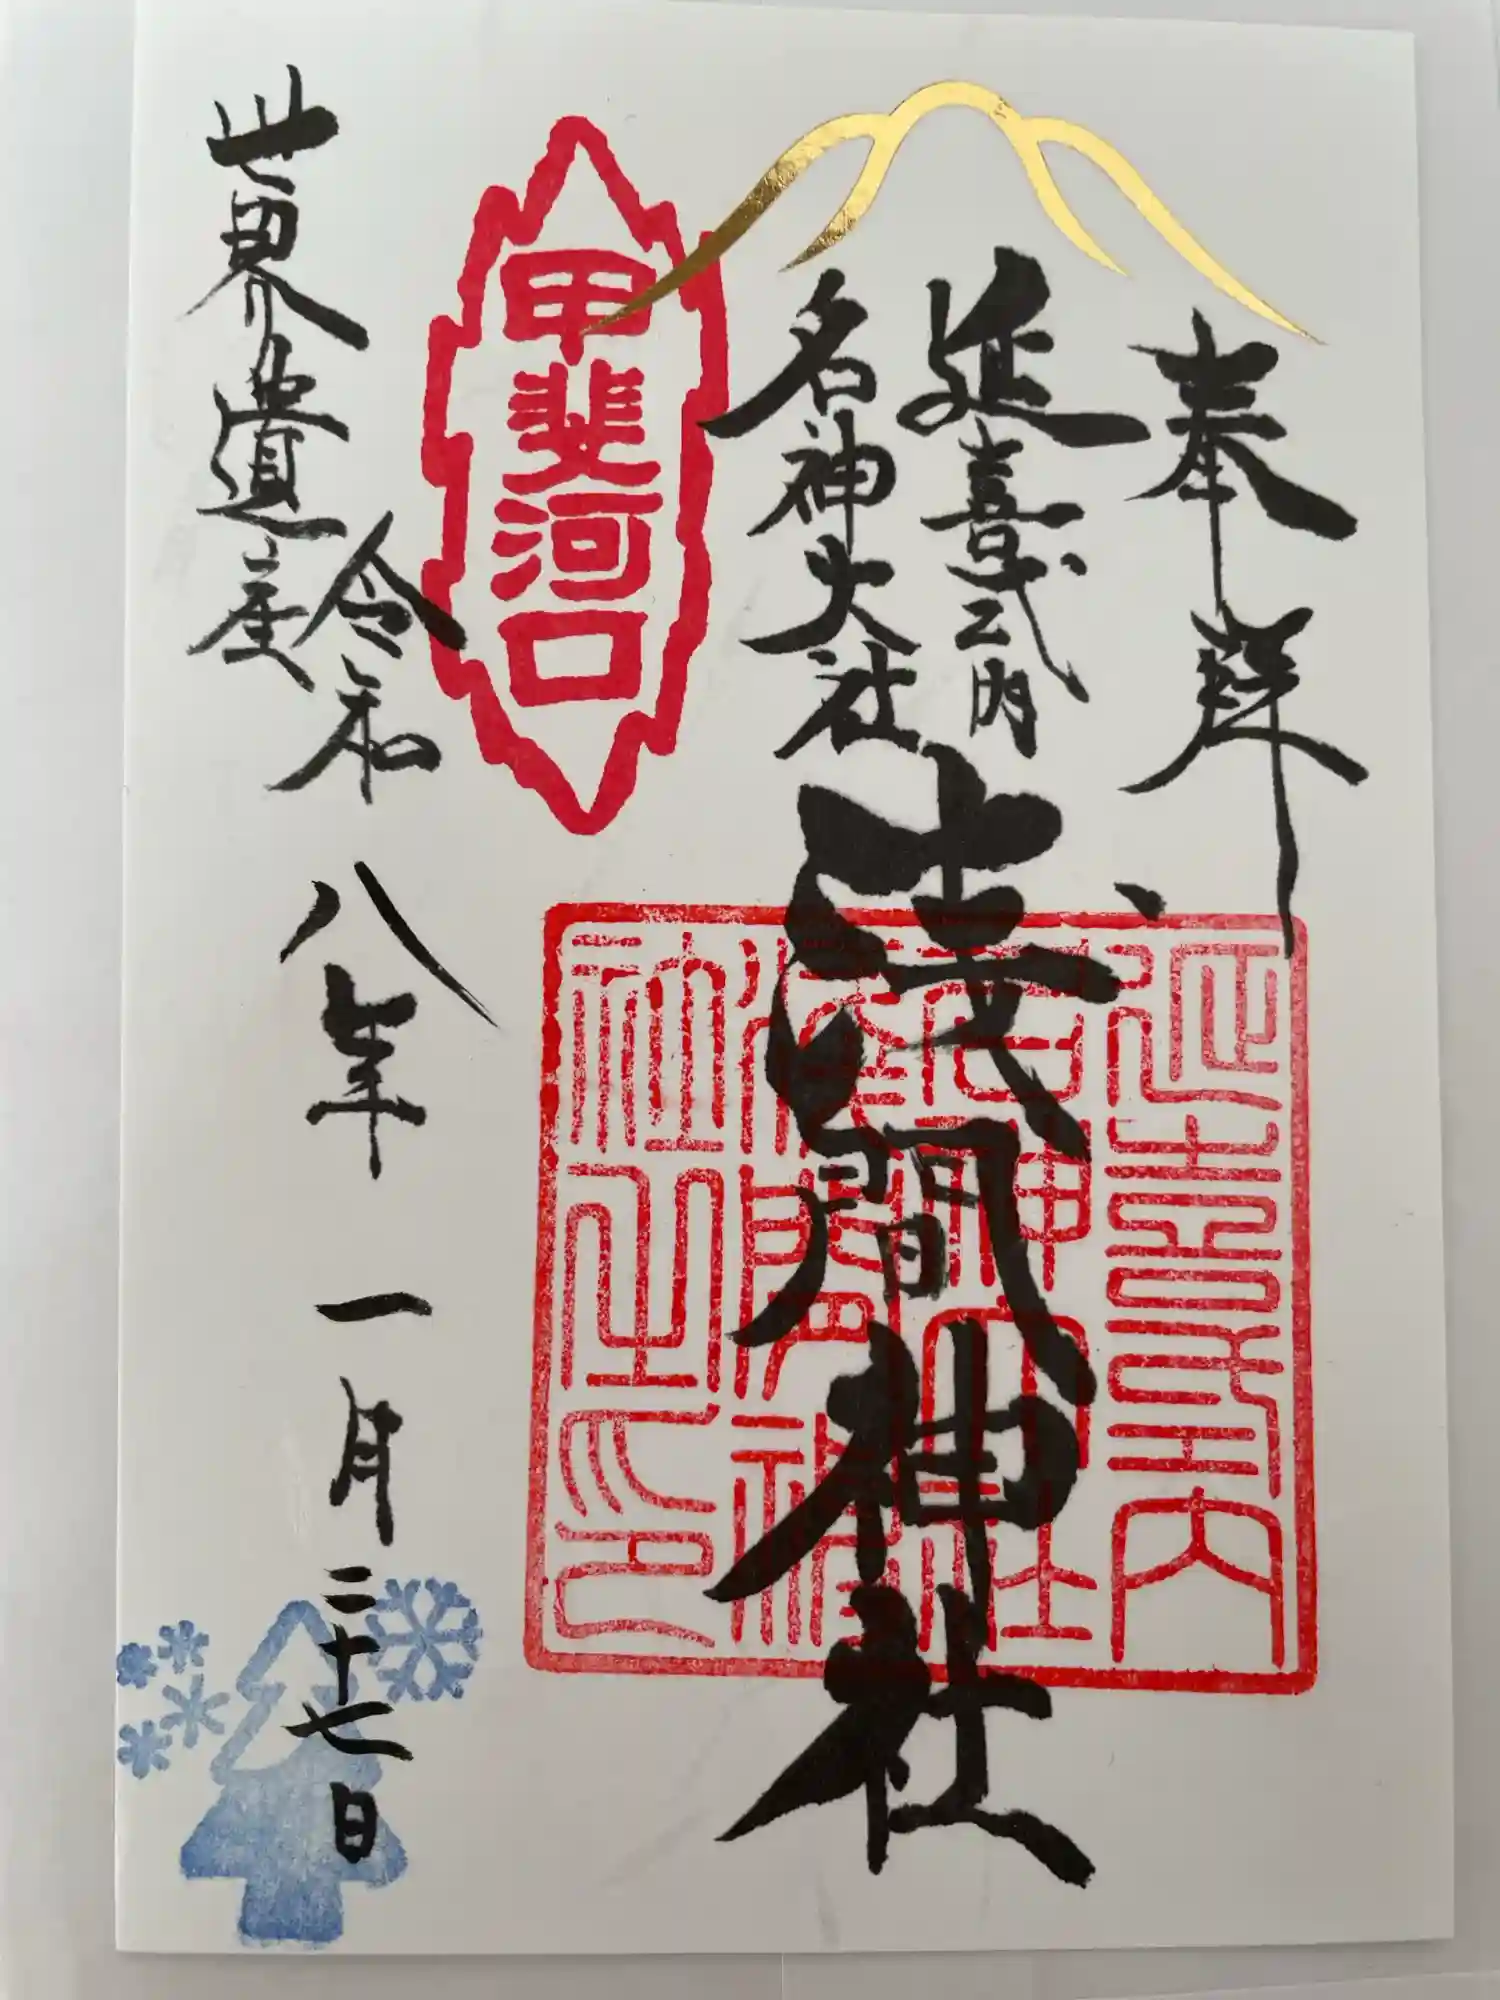 奉拝
延喜式内
名神大社
淺間神社
甲斐河口
延喜式内
名神大社
淺間神
社之印
令和八年一月二十七日
世界遺産